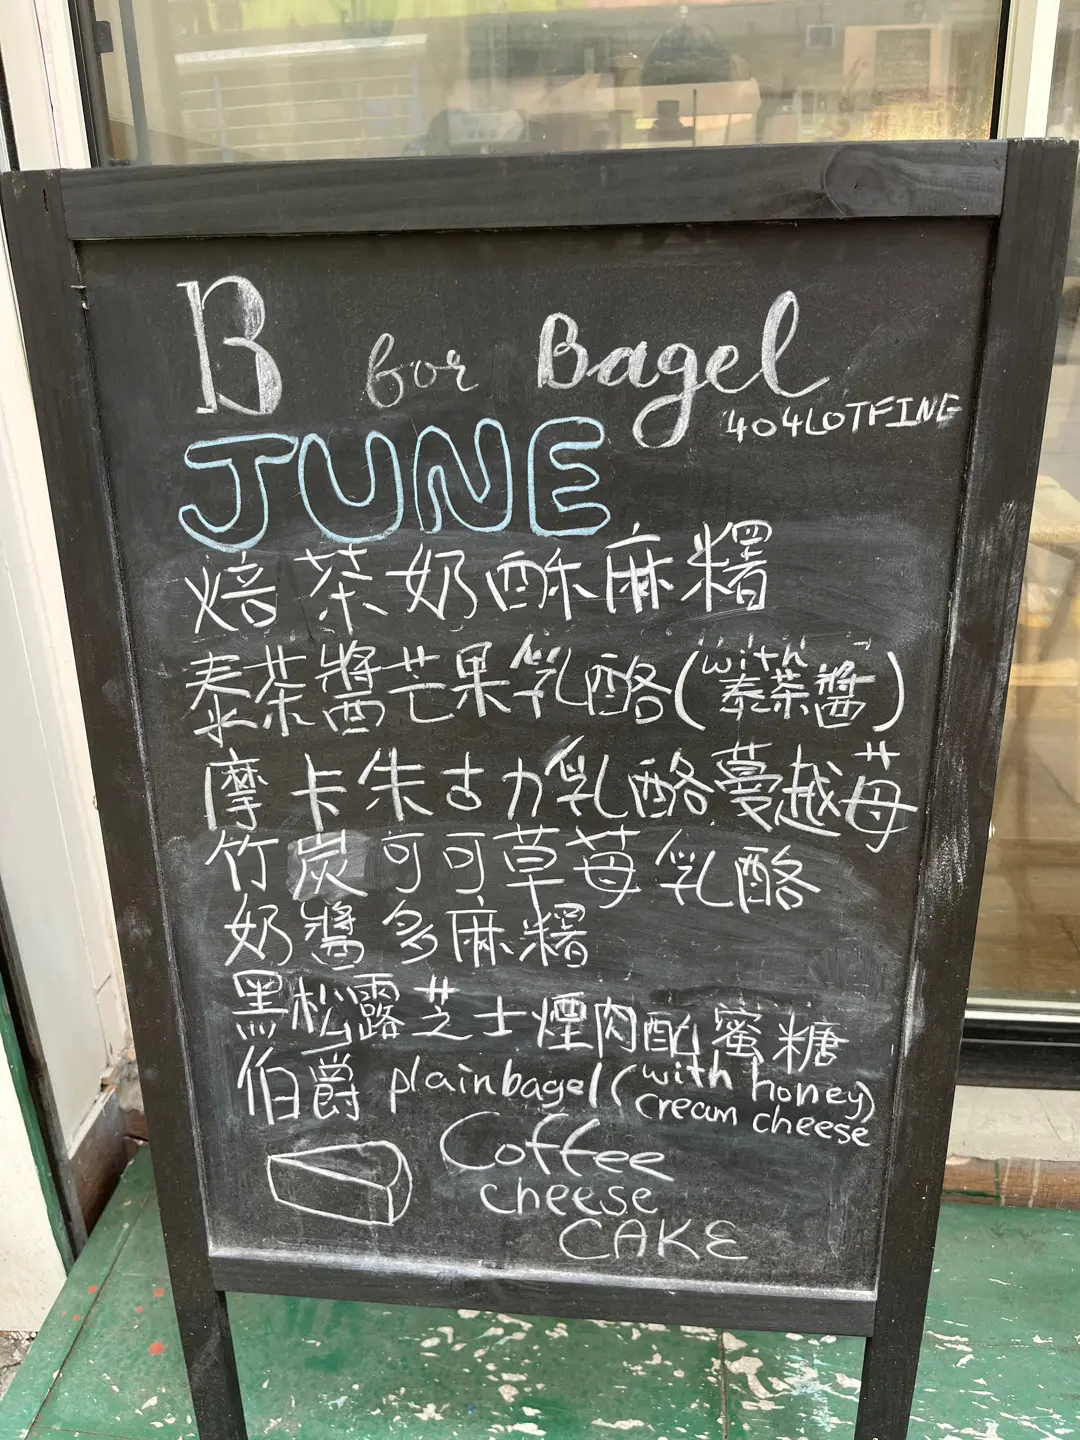 B for Bagel
404LOTFINE
JUNE
焙茶奶酥麻糬
泰茶醬芒果乳酪(with泰茶醬)
摩卡朱古力乳酪蔓越莓
竹炭可可草莓乳酪
奶醬多麻糬
黑松露芝士煙肉配蜜糖
伯爵 plain bagel (with honey)
cream cheese
Coffee
cheese
CAKE